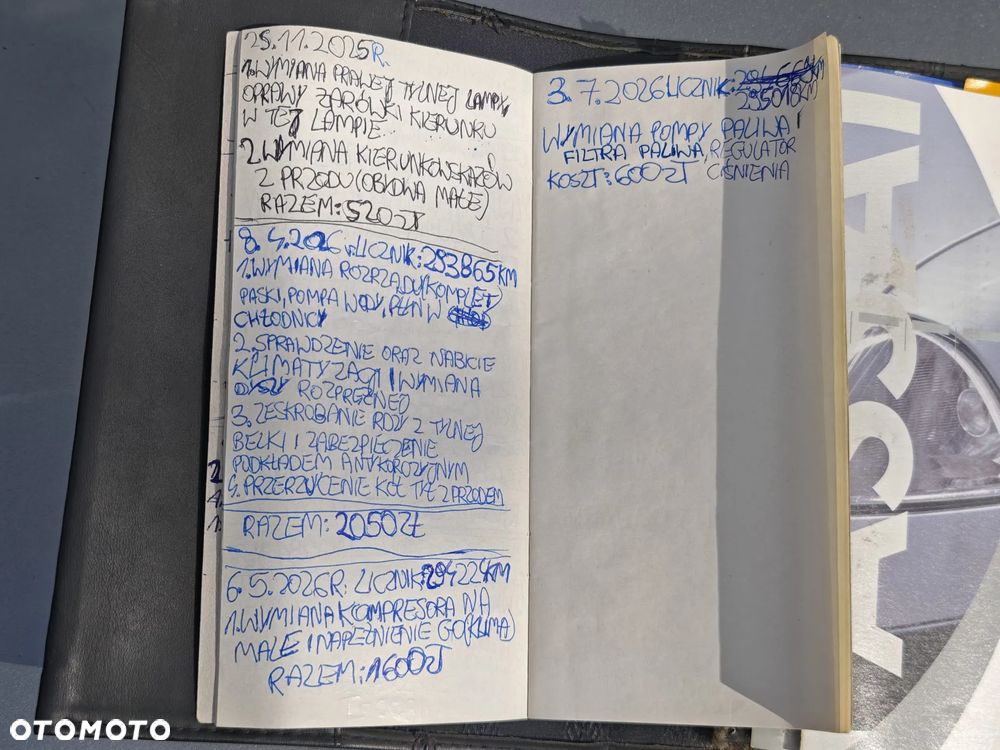 25.11.2025R.
1.WYMIANA PRAWEJ TYLNEJ LAMPY,
OPRAWY ŻARÓWKI KIERUNKU
W TEJ LAMPIE
2.WYMIANA KIERUNKOWSKAZÓW
Z PRZODU (OBUDWA MAŁE)
RAZEM: 520 ZŁ
8.4.2026 r. LICZNIK: 293865KM
1.WYMIANA ROZRZĄDU(KOMPLET)
PASKI, POMPA WODY, PŁYN W
CHŁODNICY
2.SPRAWDZENIE ORAZ NABICIE
KLIMATYZACJI I WYMIANA
DYSZY ROZPRĘŻNEJ
3. ZESKROBANIE RDZY Z TYLNEJ
BELKI I ZABEZPIECZENIE
PODKŁADEM ANTYKOROZYJNYM
4. PRZERZUCENIE KÓŁ TYŁ Z PRZODEM
RAZEM: 2050ZŁ
6.5.2026R. LICZNIK: 294224KM
1.WYMIANA KOMPRESORA NA
MAŁE I NAPEŁNIENIE GO(KLIMA)
RAZEM: 1600ZŁ
3.7.2026 LICZNIK: KM
295018KM
WYMIANA POMPY PALIWA I
FILTRA PALIWA, REGULATOR
KOSZT: 600ZŁ CIŚNIENIA
OTOMOTO